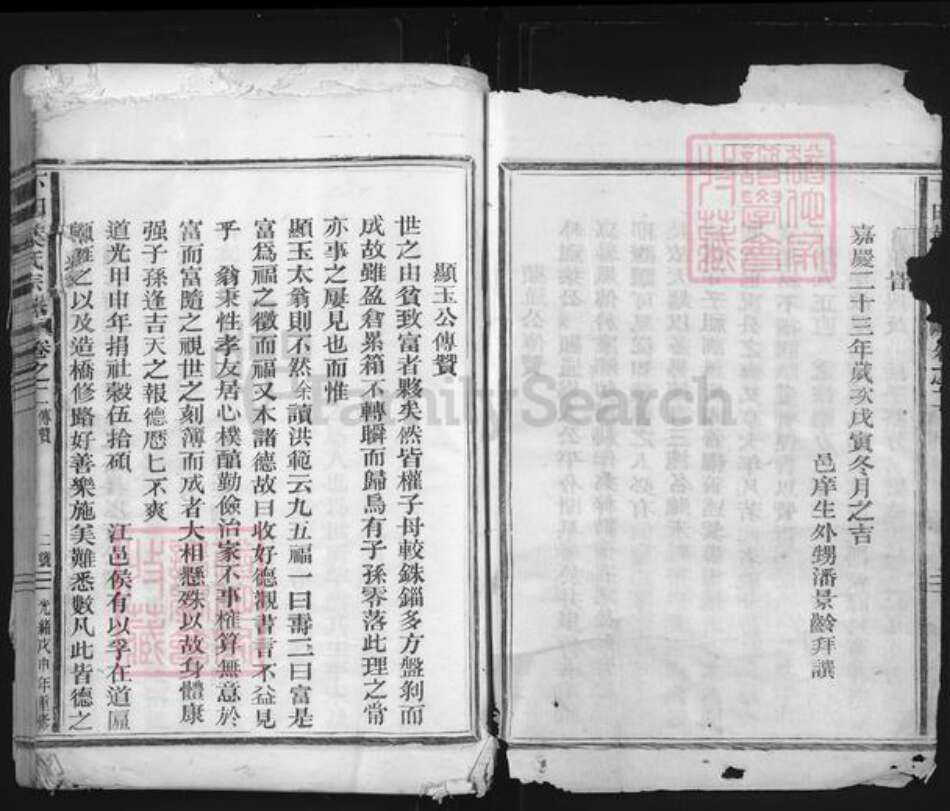 嘉慶二十三年歲次戊寅冬月之吉
邑庠生外甥潘景齡拜譔
顯玉公傳贊
世之由貧致富者夥矣然皆權子母較銖錙多方盤剝而
成故雖盈倉累箱不轉瞬而歸烏有子孫零落此理之常
亦事之屢見也而惟
顯玉太翁則不然余讀洪範云九五福一曰壽二曰富是
富爲福之徵而福又本諸德故曰攸好德觀書言不益見
乎 翁秉性孝友居心樸醕勤儉治家不事權算無意於
富而富隨之視世之刻簿而成者大相懸殊以故身體康
强子孫逢吉天之報德歷匕不爽
道光甲申年捐社穀伍拾碩 江邑侯有以孚在道匾
額旌之以及造橋修路好善樂施美難悉數凡此皆德之
氏宗譜 卷之二 傳贊 二號 光緒戊申年重修
FamilySearch